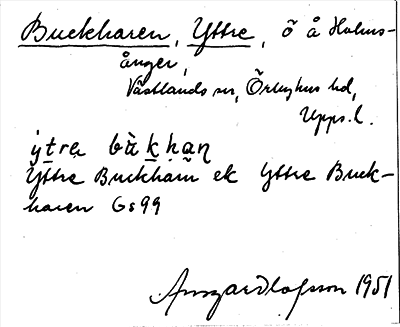 Buckharen, Yttre, ö å Holms-
ånger,
Västlands sn, Örbyhus hd,
Upps. l.
ẏtrẹ bù̀kḥaṇ
Yttre Buckham ek Yttre Buck-
haren Gs99
Olofsson 1951